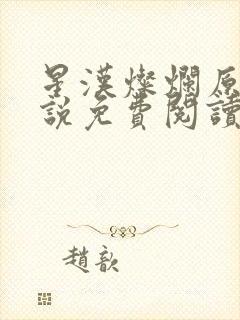 星漢燦爛原
說免費閱讀
趙歆